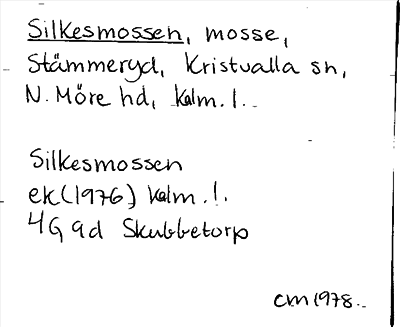 Silkesmossen, mosse,
Stämmeryd, Kristvalla sn,
N. Möre hd, Kalm. l.

Silkesmossen
ek (1976) Kalm. l.
4G 9d Skubbetorp

CM 1978.